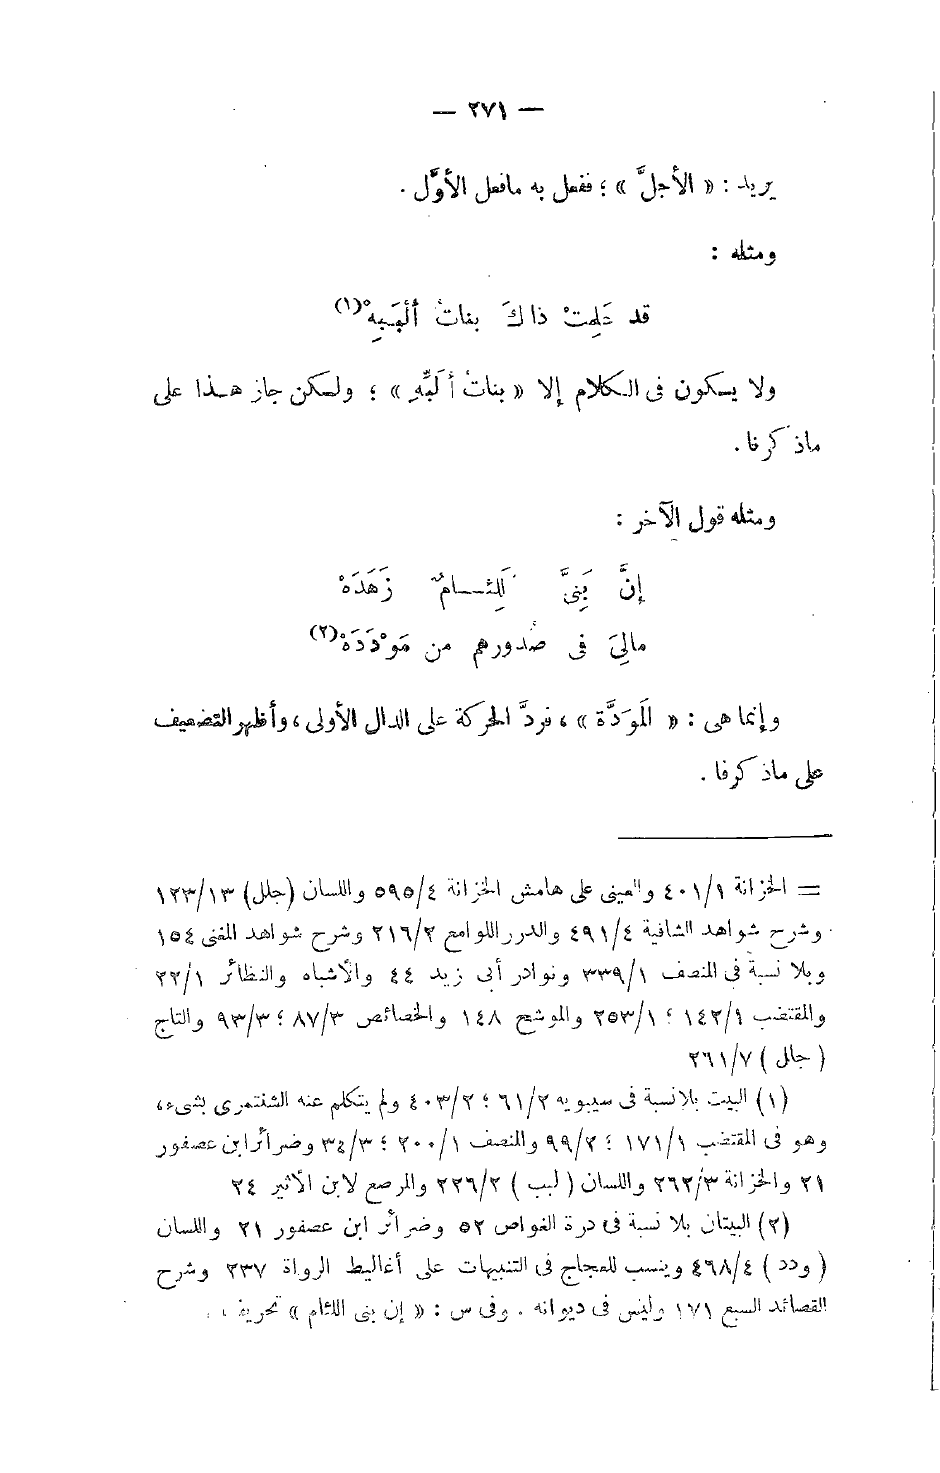 — ٢٧١ —
يريد : « الأجلَّ » ؛ ففعل به مافعل الأوَّل .
ومثله :
قد عَلِمتْ ذاكَ بناتُ ألْبَبِهْ(١)
ولا يكون فى الكلام إلا « بناتُ ألَبِّهِ » ؛ ولكن جاز هذا على
ماذكرنا .
ومثله قول الآخر :
إنَّ بَنِىَّ لَلِئامٌ زَهَدَهْ
مالِىَ فى صُدورهم من مَوْدَدَهْ(٢)
وإنما هى : « المَوَدَّة » ، فردَّ الحركة على الدال الأولى ، وأظهر التضعيف
على ماذكرنا .
= الخزانة ٤٠١/١ والعينى على هامش الخزانة ٥٩٥/٤ واللسان (جلل) ١٢٣/١٣
وشرح شواهد الشافية ٤٩١/٤ والدرر اللوامع ٢١٦/٢ وشرح شواهد المغنى ١٥٤
وبلا نسبة فى المنصف ٣٣٩/١ ونوادر أبى زيد ٤٤ والأشباه والنظائر ٢٢/١
والمقتضب ١٤٢/١ ؛ ٢٥٣/١ والموشح ١٤٨ والخصائص ٨٧/٣ ؛ ٩٣/٣ والتاج
( جلل ) ٢٦١/٧
(١) البيت بلا نسبة فى سيبويه ٦١/٢ ؛ ٤٠٣/٢ ولم يتكلم عنه الشنتمرى بشىء ،
وهو فى المقتضب ١٧١/١ ؛ ٩٩/٢ والمنصف ٢٠٠/١ ؛ ٣٤/٣ وضرائر ابن عصفور
٢١ والخزانة ٢٦٢/٣ واللسان ( لبب ) ٢٢٦/٢ والمرصع لابن الأثير ٢٤
(٢) البيتان بلا نسبة فى درة الغواص ٥٢ وضرائر ابن عصفور ٢١ واللسان
( ودد ) ٤٦٨/٤ وينسب للعجاج فى التنبيهات على أغاليط الرواة ٢٣٧ وشرح
القصائد السبع ١٧١ وليس فى ديوانه . وفى س : « إن بنى اللئام » تحريف .